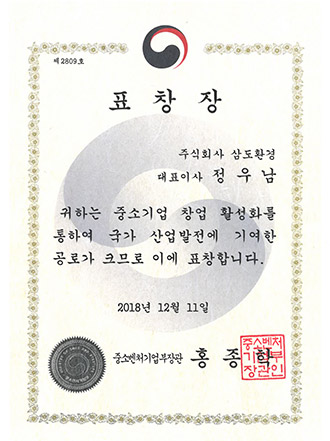 제 2809 호
표 창 장
주식회사 삼도환경
대표이사 정 우 남
귀하는 중소기업 창업 활성화를
통하여 국가 산업발전에 기여한
공로가 크므로 이에 표창합니다.
2018년 12월 11일
중소벤처기업부장관 홍 종 학
중소벤처
기업부
장관인